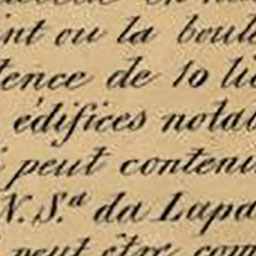 int ou la boule
tence de 10 li
édifices notab
peut conteni
N. S.ª da Lapa
peut être com